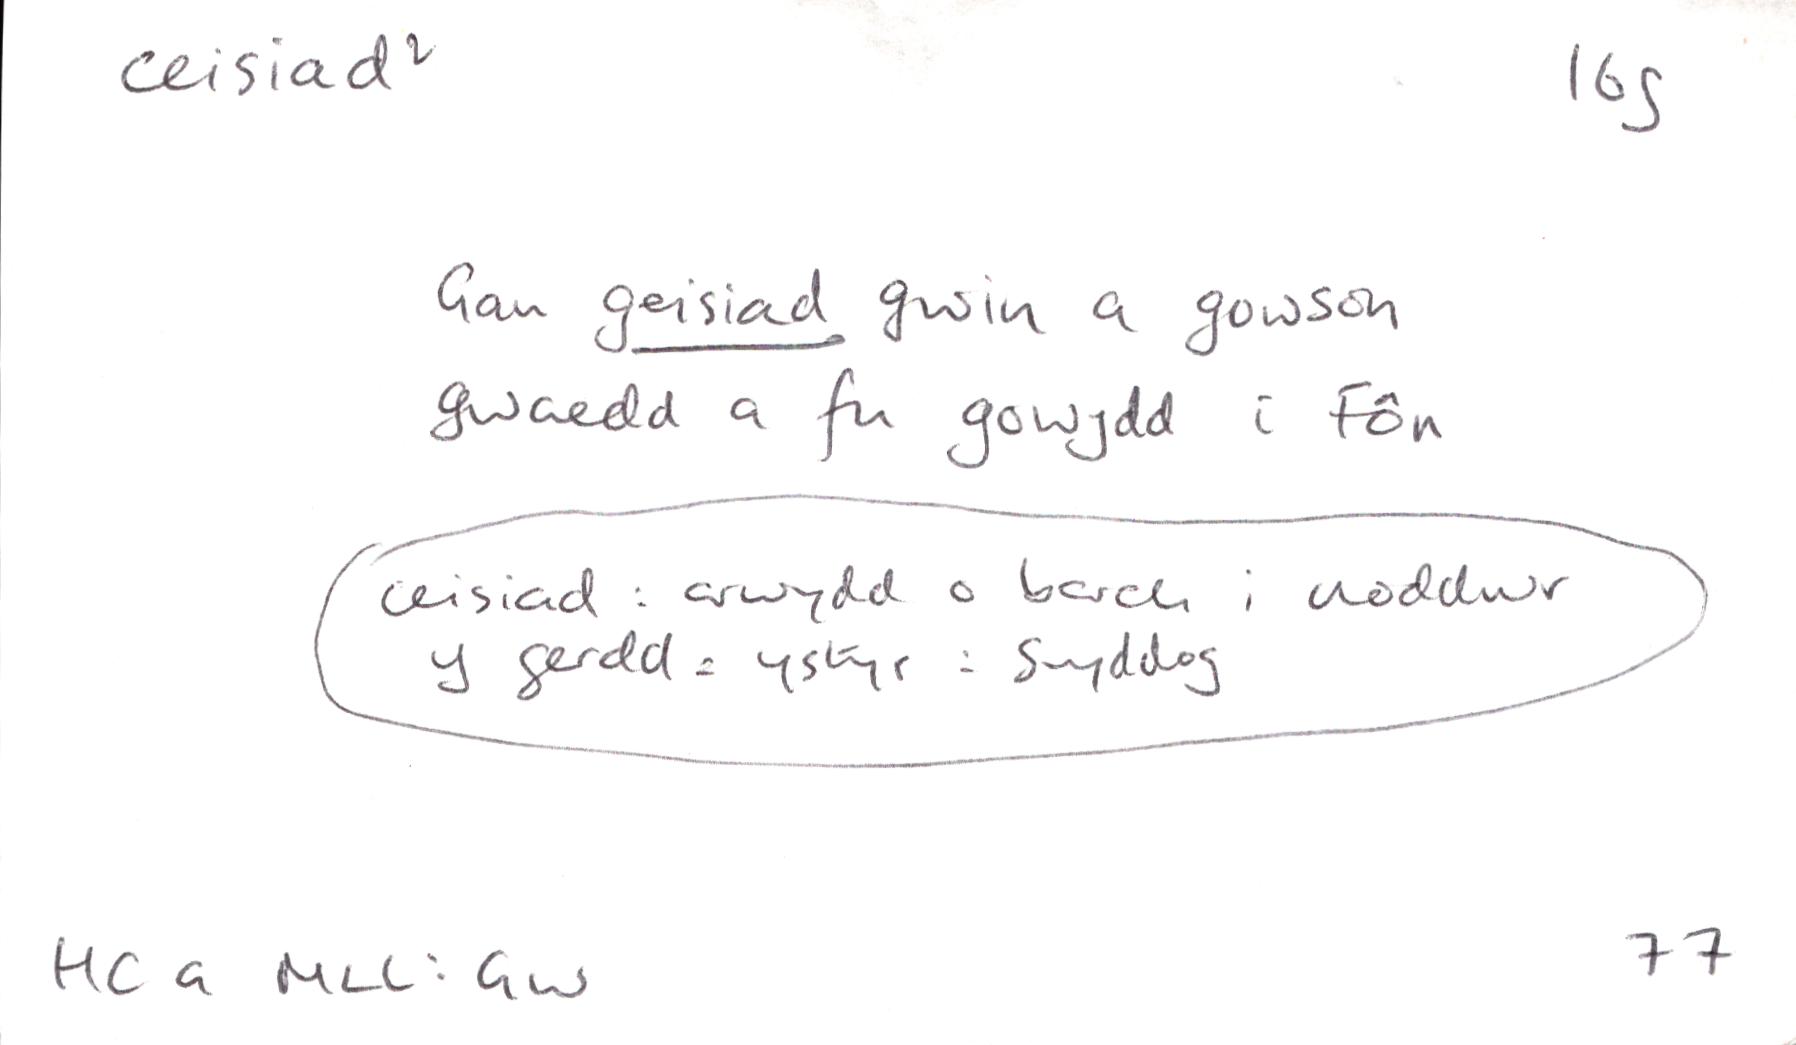 ceisiad² 16g
Gan geisiad gwin a gowson
gwaedd a fu gowydd i Fôn
ceisiad : arwydd o barch i noddwr
y gerdd = ystyr : swyddog
HC a MLL: GW 77